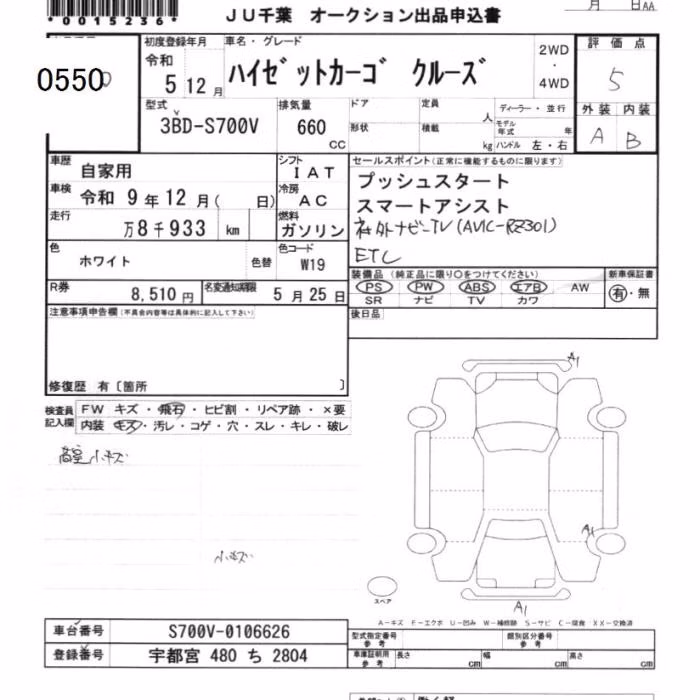 *0015236*
JU千葉 オークション出品申込書
月 日AA
0550
初度登録年月 車名・グレード
令和 5 12月 ハイゼットカーゴ クルーズ
2WD ・ 4WD
評価点
5
外装 内装
A B
型式 3BD-S700V
排気量 660 CC
ドア 定員 人
形状 積載 kg
ディーラー・並行
モデル年式 年
ハンドル 左・右
車歴 自家用
シフト IAT
車検 令和 9年 12月( 日)
冷房 AC
走行 万8千933 km
燃料 ガソリン
色 ホワイト 色替
色コード W19
R券 8,510円
名変通知期限 5月25日
セールスポイント(正常に機能するものに限ります)
プッシュスタート
スマートアシスト
社外ナビ-TV(AVIC-RZ301)
ETC
装備品(純正品に限り○をつけてください)
PS PW ABS エアB AW
SR ナビ TV カワ
新車保証書
有・無
後日品
注意事項申告欄(不具合内容等は具体的に記入して下さい)
修復歴 有〔箇所 〕
検査員記入欄
FW キズ・飛石・ヒビ割・リペア跡・×要
内装 キズ・汚レ・コゲ・穴・スレ・キレ・破レ
荷室小キズ
小キズ
A1
A1
A1
スペア
A-キズ E-エクボ U-凹み W-補修跡 S-サビ C-腐食 XX-交換済
車台番号 S700V-0106626
登録番号 宇都宮 480 ち 2804
型式指定番号 参考
類別区分番号 参考
車庫証明用 参考 長さ cm 幅 cm 高さ cm